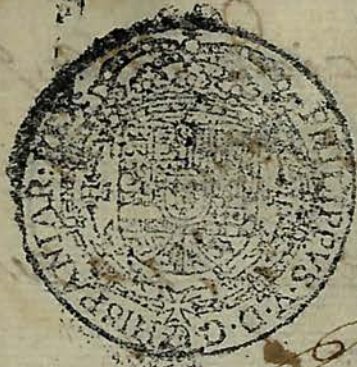 PHILIPPVS·V·D·G·HISPANIAR·